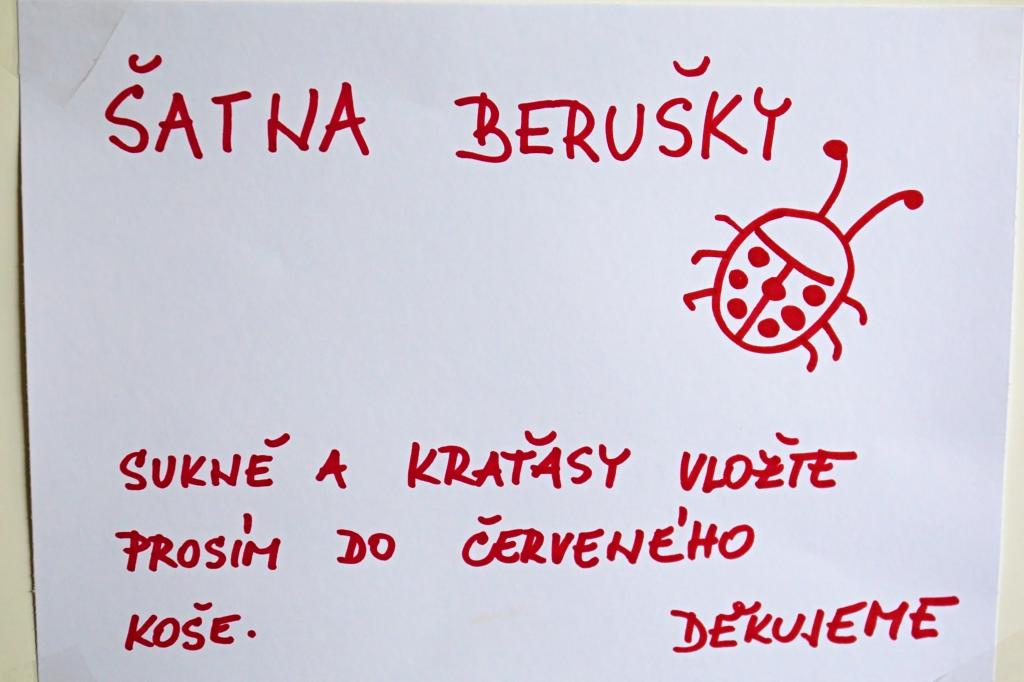 ŠATNA BERUŠKY
SUKNĚ A KRAŤASY VLOŽTE
PROSÍM DO ČERVENÉHO
KOŠE. DĚKUJEME